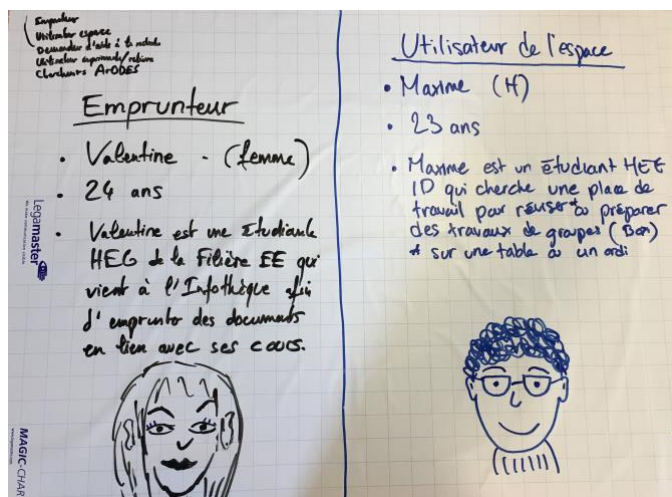 Emprunteur
Utilisateur espace
Demandeur d'aide à la recherche
Utilisateur imprimante/reliure
Chercheurs ArODES
Emprunteur
• Valentine - (femme)
• 24 ans
• Valentine est une Étudiante
HEG de la Filière EE qui
vient à l'Infothèque afin
d'emprunter des documents
en lien avec ses cours.
Legamaster
MAGIC-CHAR
Utilisateur de l'espace
• Maxime (H)
• 23 ans
• Maxime est un étudiant HEG
ID qui cherche une place de
travail pour réviser* ou préparer
des travaux de groupes (Bsn)
* sur une table ou un ordi